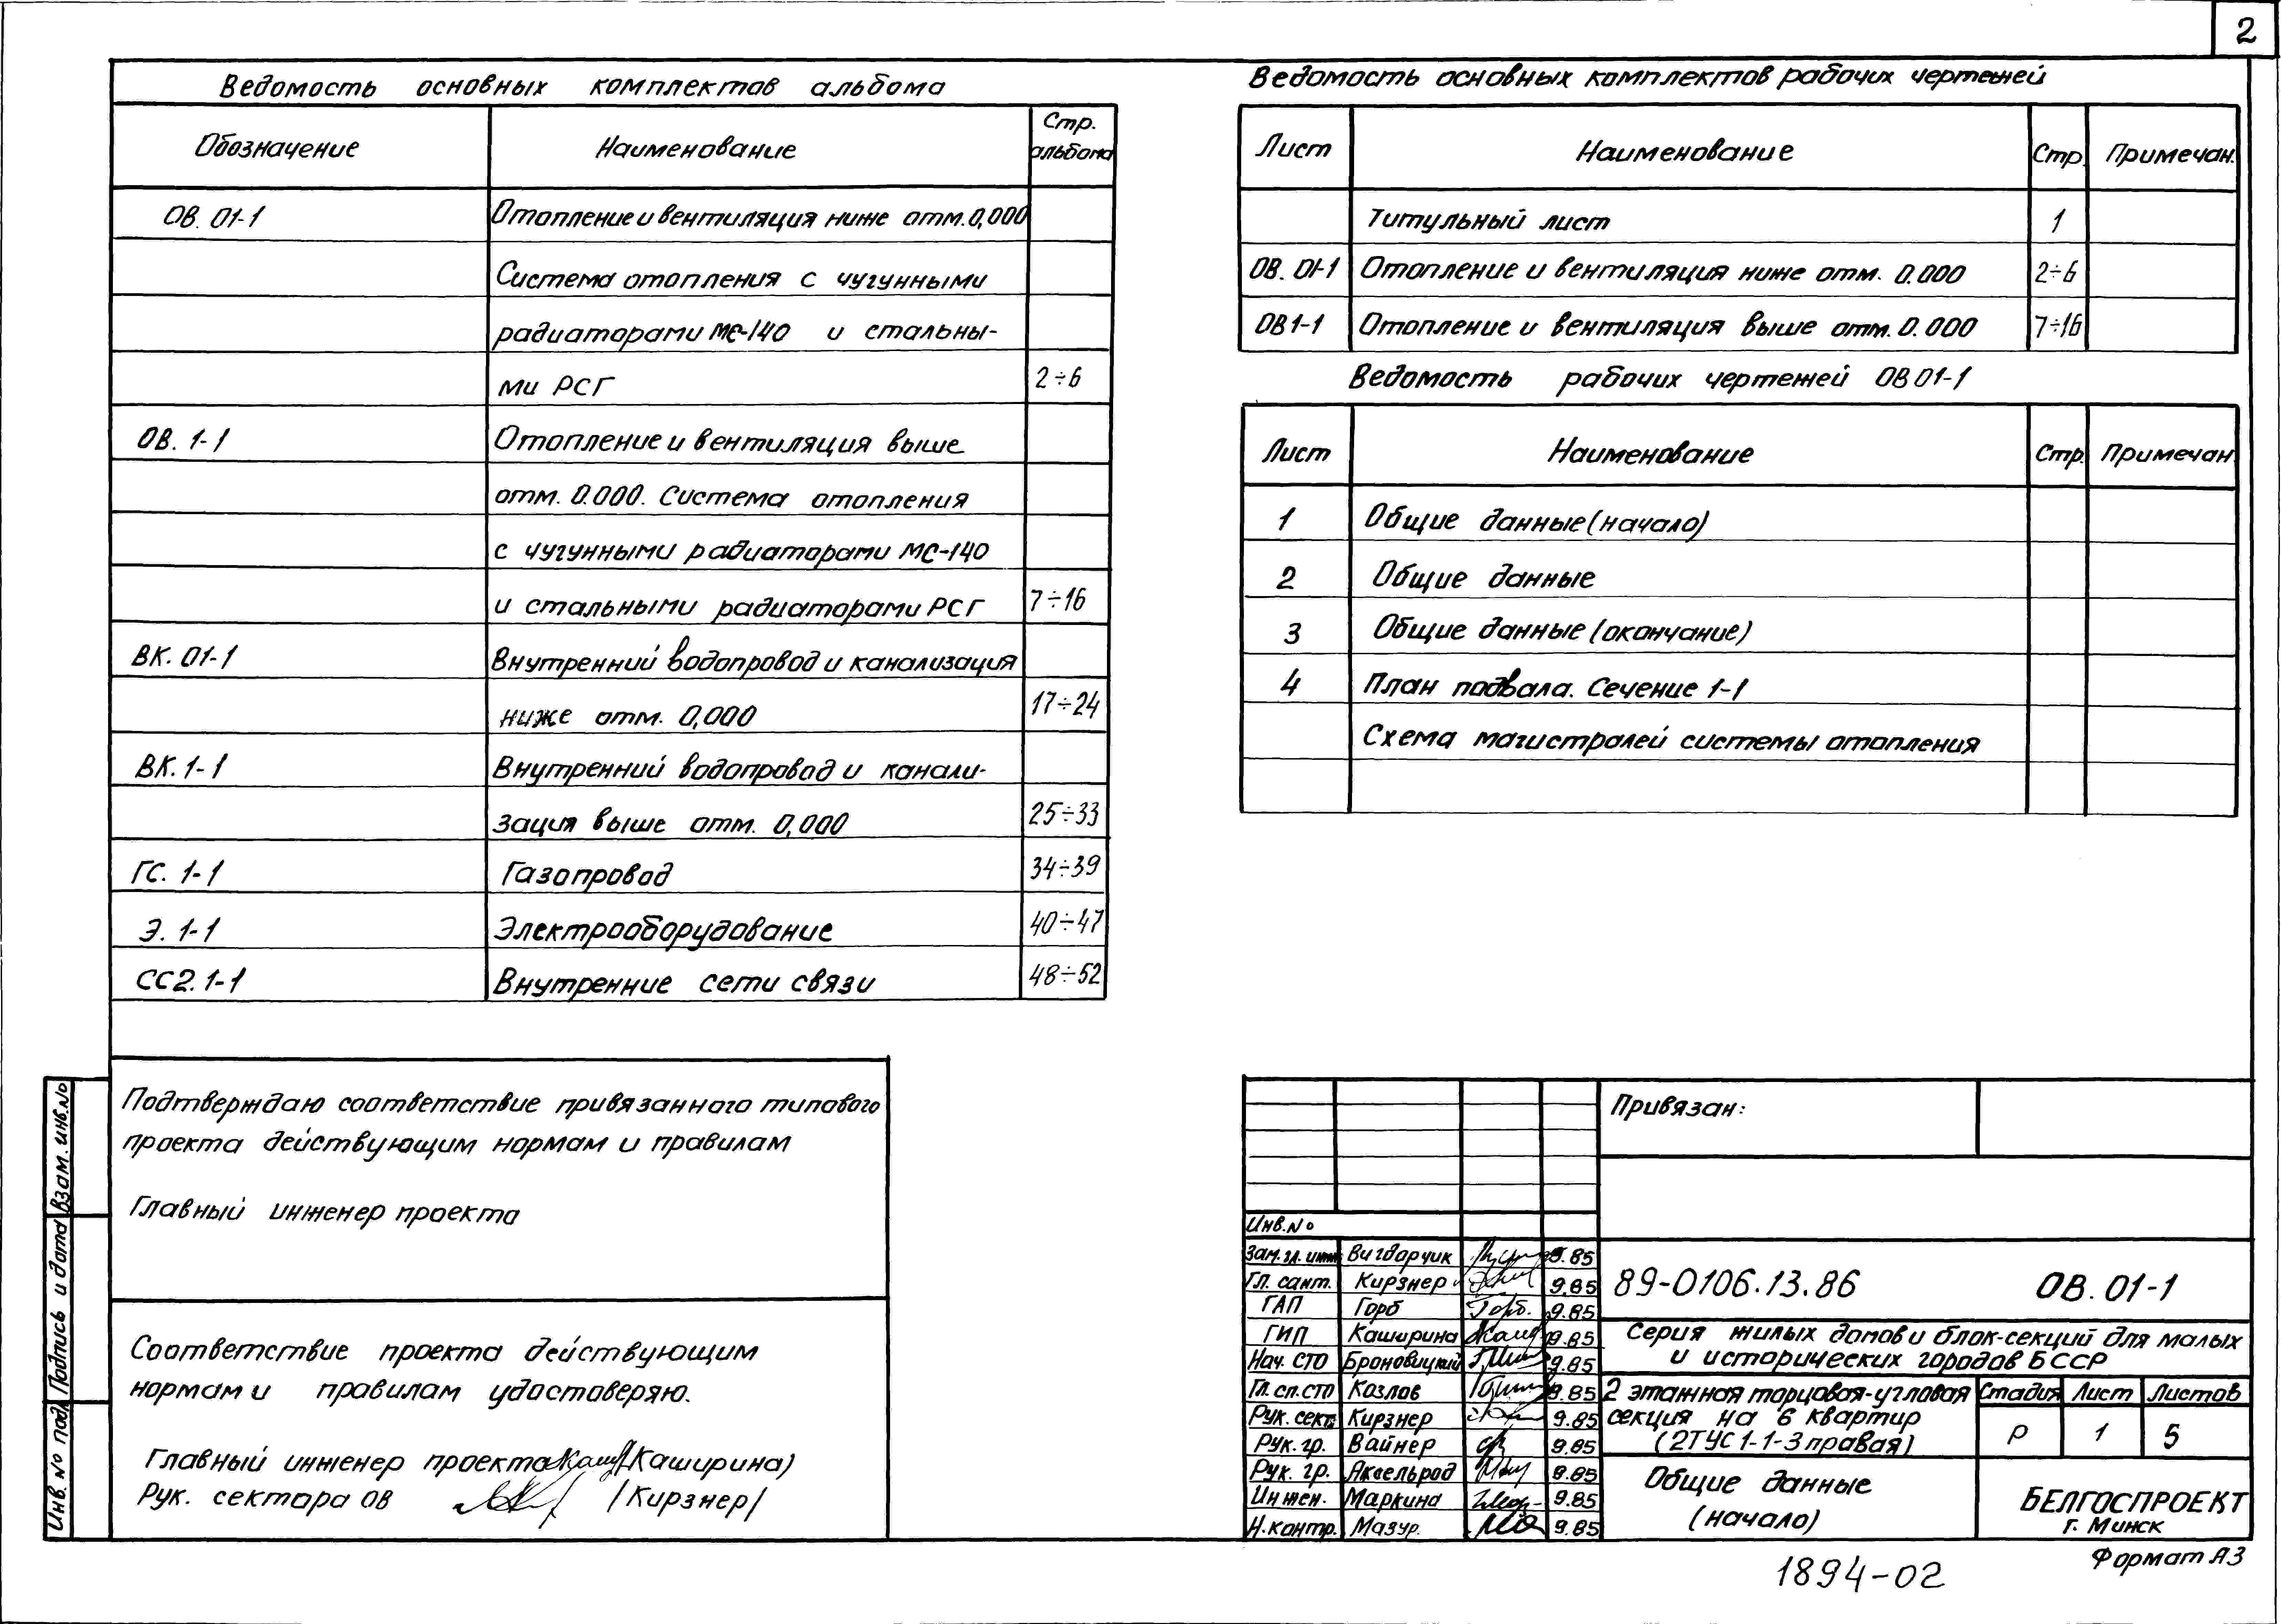 2
Ведомость основных комплектов альбома
Обозначение Наименование Стр. альбома
ОВ. 01-1 Отопление и вентиляция ниже отм. 0,000
Система отопления с чугунными
радиаторами МС-140 и стальны-
ми РСГ 2÷6
ОВ. 1-1 Отопление и вентиляция выше
отм. 0.000. Система отопления
с чугунными радиаторами МС-140
и стальными радиаторами РСГ 7÷16
ВК. 01-1 Внутренний водопровод и канализация
ниже отм. 0,000 17÷24
ВК. 1-1 Внутренний водопровод и канали-
зация выше отм. 0,000 25÷33
ГС. 1-1 Газопровод 34÷39
Э. 1-1 Электрооборудование 40÷47
СС2. 1-1 Внутренние сети связи 48÷52
Ведомость основных комплектов рабочих чертежей
Лист Наименование Стр. Примечан.
Титульный лист 1
ОВ. 01-1 Отопление и вентиляция ниже отм. 0.000 2÷6
ОВ1-1 Отопление и вентиляция выше отм. 0.000 7÷16
Ведомость рабочих чертежей ОВ01-1
Лист Наименование Стр. Примечан
1 Общие данные (начало)
2 Общие данные
3 Общие данные (окончание)
4 План подвала. Сечение 1-1
Схема магистралей системы отопления
Подтверждаю соответствие привязанного типового
проекта действующим нормам и правилам
Главный инженер проекта
Соответствие проекта действующим
нормам и правилам удостоверяю.
Главный инженер проекта (Каширина)
Рук. сектора ОВ /Кирзнер/
Взам. инв. №
Подпись и дата
Инв. № под
Привязан:
Инв. №
Зам. гл. инж Вигдорчик 9.85
Гл. сант. Кирзнер 9.85
ГАП Горб 9.85
ГИП Каширина 9.85
Нач. СТО Броновицкий 9.85
Гл. сп. СТО Козлов 9.85
Рук. сект. Кирзнер 9.85
Рук. гр. Вайнер 9.85
Рук. гр. Аксельрод 9.85
Инжен. Маркина 9.85
Н. контр. Мазур. 9.85
89-0106.13.86 ОВ. 01-1
Серия жилых домов и блок-секций для малых
и исторических городов БССР
2 этажная торцовая-угловая
секция на 6 квартир
(2ТУС 1-1-3 правая)
Стадия Лист Листов
Р 1 5
Общие данные
(начало)
БЕЛГОСПРОЕКТ
г. Минск
Формат А3
1894-02